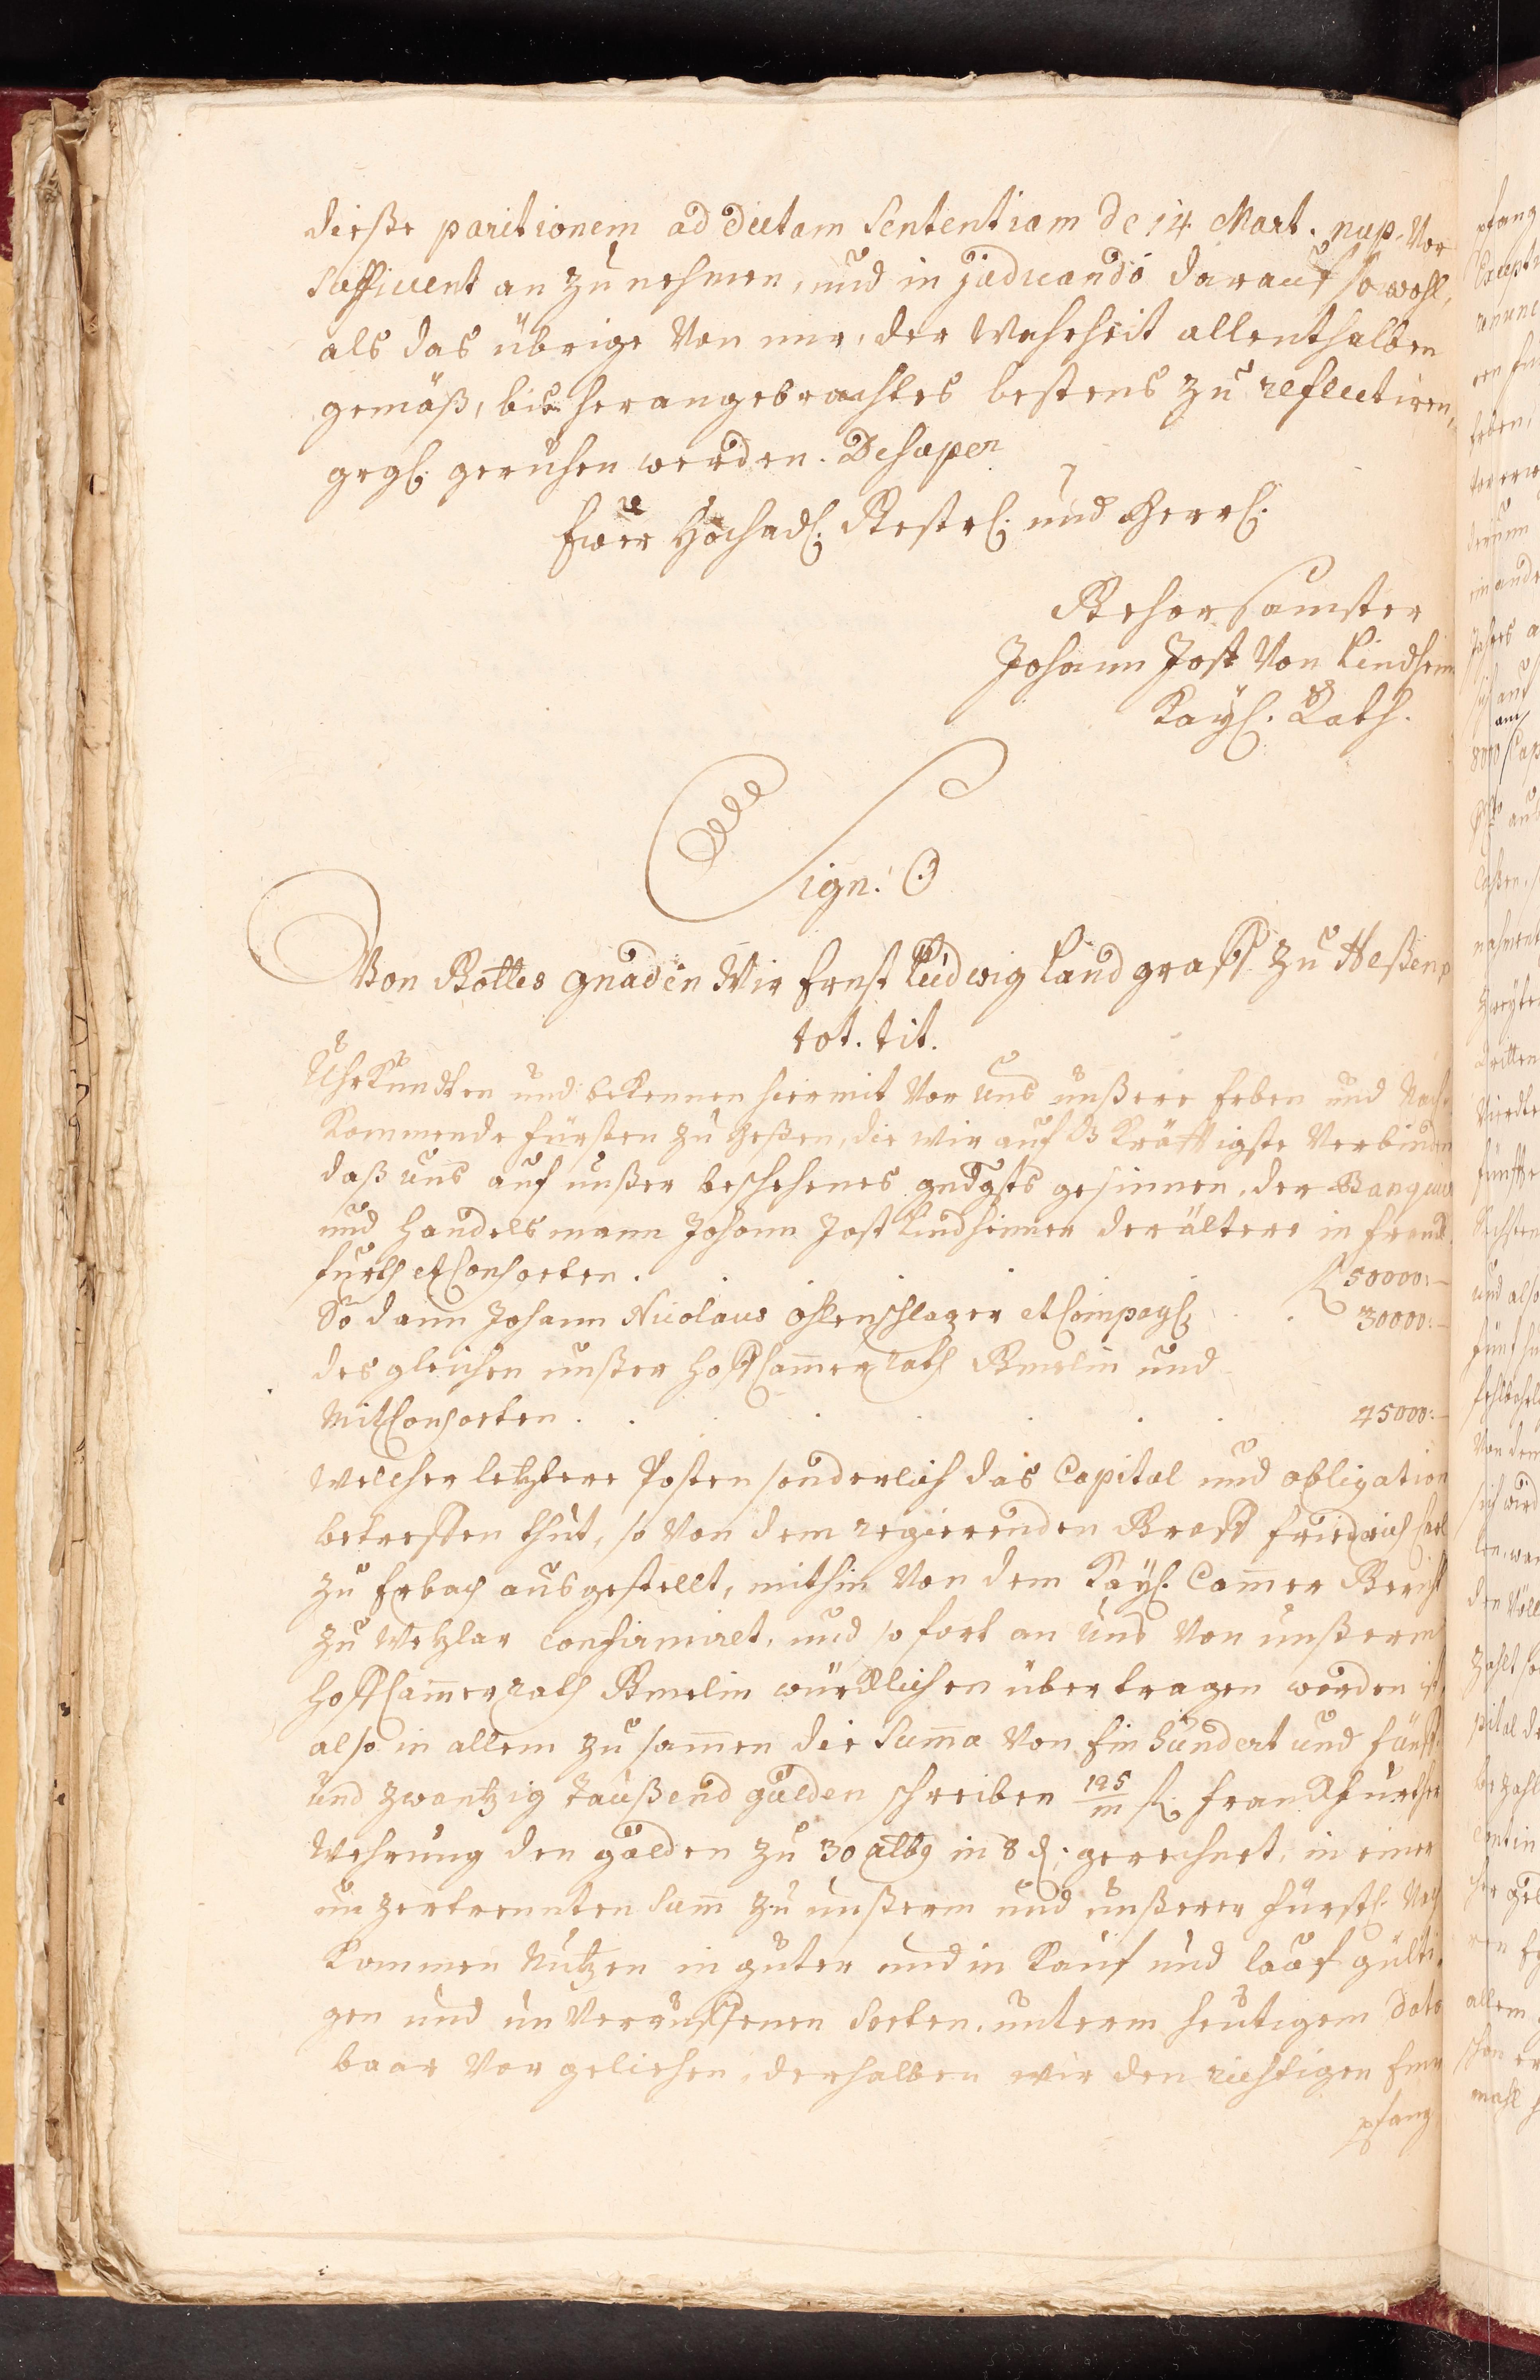 dieße paritionem ad dictam Sententiam de 14. Mart. nup. Vor
sufficient an zu nehmen, und in judicando darauf sowohl,
als das übrige Von mir, der Wahrheit allenthalben
gemäß, bis herangebrachtes bestens zu reflectiren,
grgl. geruhen werden. Desuper
Ewer Hochadl. Gestrl. und Herrl.
Gehorsamster
Johann Jost Von Lindheim
Kayl. Rath.
Sign: ☉
Von Gottes gnaden Wir Ernst Ludwig Landgraff zu Heßen p
tot. tit.
Uhrkundten und bekennen hiermit Vor uns unßere Erben und Nach
Kommende Fürsten zu Heßen, die wir aufs Kräfftigste Verbinden
daß uns auf unßer beschehenes gndgstes gesinnen, der Banquier
und Handelsmann Johann Jost Lindheimer der ältere in Franck
furth et Consorten . . . . fl 50000:—
So dann Johann Nicolaus Ohlenschlager et Compagl . . 30000:—
desgleichen unßer Hoff Cammer Rath Gmelin und
Mit Consorten . . . . . . . 45000:—
Welcher letztere Posten sonderlich das Capital und obligation
betreffen thut, so Von dem regierenden Graff Friedrich Carl
zu Erbach ausgestellt, mithin Von dem Kayl. Cammer Gericht
zu Wetzlar confirmiret, und so fort an uns Von unßerm
Hoff Cammer Rath Gmelin würcklichen übertragen worden ist
also in allem zu sammen die Summa Von Ein hundert und fünff
und zwantzig taußend gulden schreiben 125/m fl. Franckfurther
Wehrung den gulden zu 30 albg in 8 d. gerechnet, in einer
un zertrennten Summ zu unßerm und unßerer Fürstl. Nach
Kommen Nutzen in guter und in Kauf und lauf gülti,
gen und un Verruffenen Sorten, unterm heutigem Dato
baar Vor geliehen, derhalben wir den richtigen Em
pfang